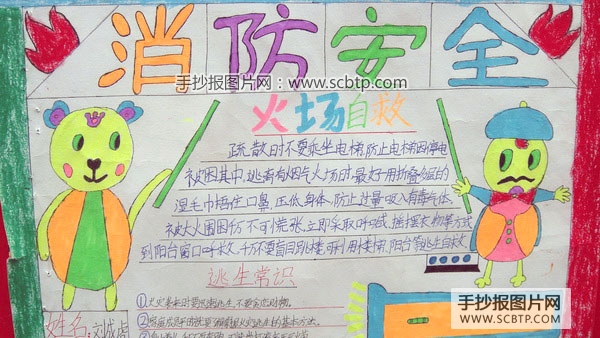 消防安全
手抄报图片网：www.scbtp.com
火场自救
疏散时不要乘坐电梯,防止电梯因停电
被困其中,逃离有烟气火场时,最好用折叠3层的
湿毛巾捂住口鼻,压低身体,防止过量吸入有毒气体。
被大火围困,千万不可慌张,立即采取呼喊,摇摆衣物等方式
到阳台窗口呼救,千万不要盲目跳楼,可利用楼梯,阳台等逃生自救
逃生常识
①火灾袭来时要迅速逃生,不要贪恋财物。
②家庭成员平时就要了解掌握火灾逃生的基本方法。
③
姓名:刘成虎
手抄报图片网
WWW.SCBTP.COM